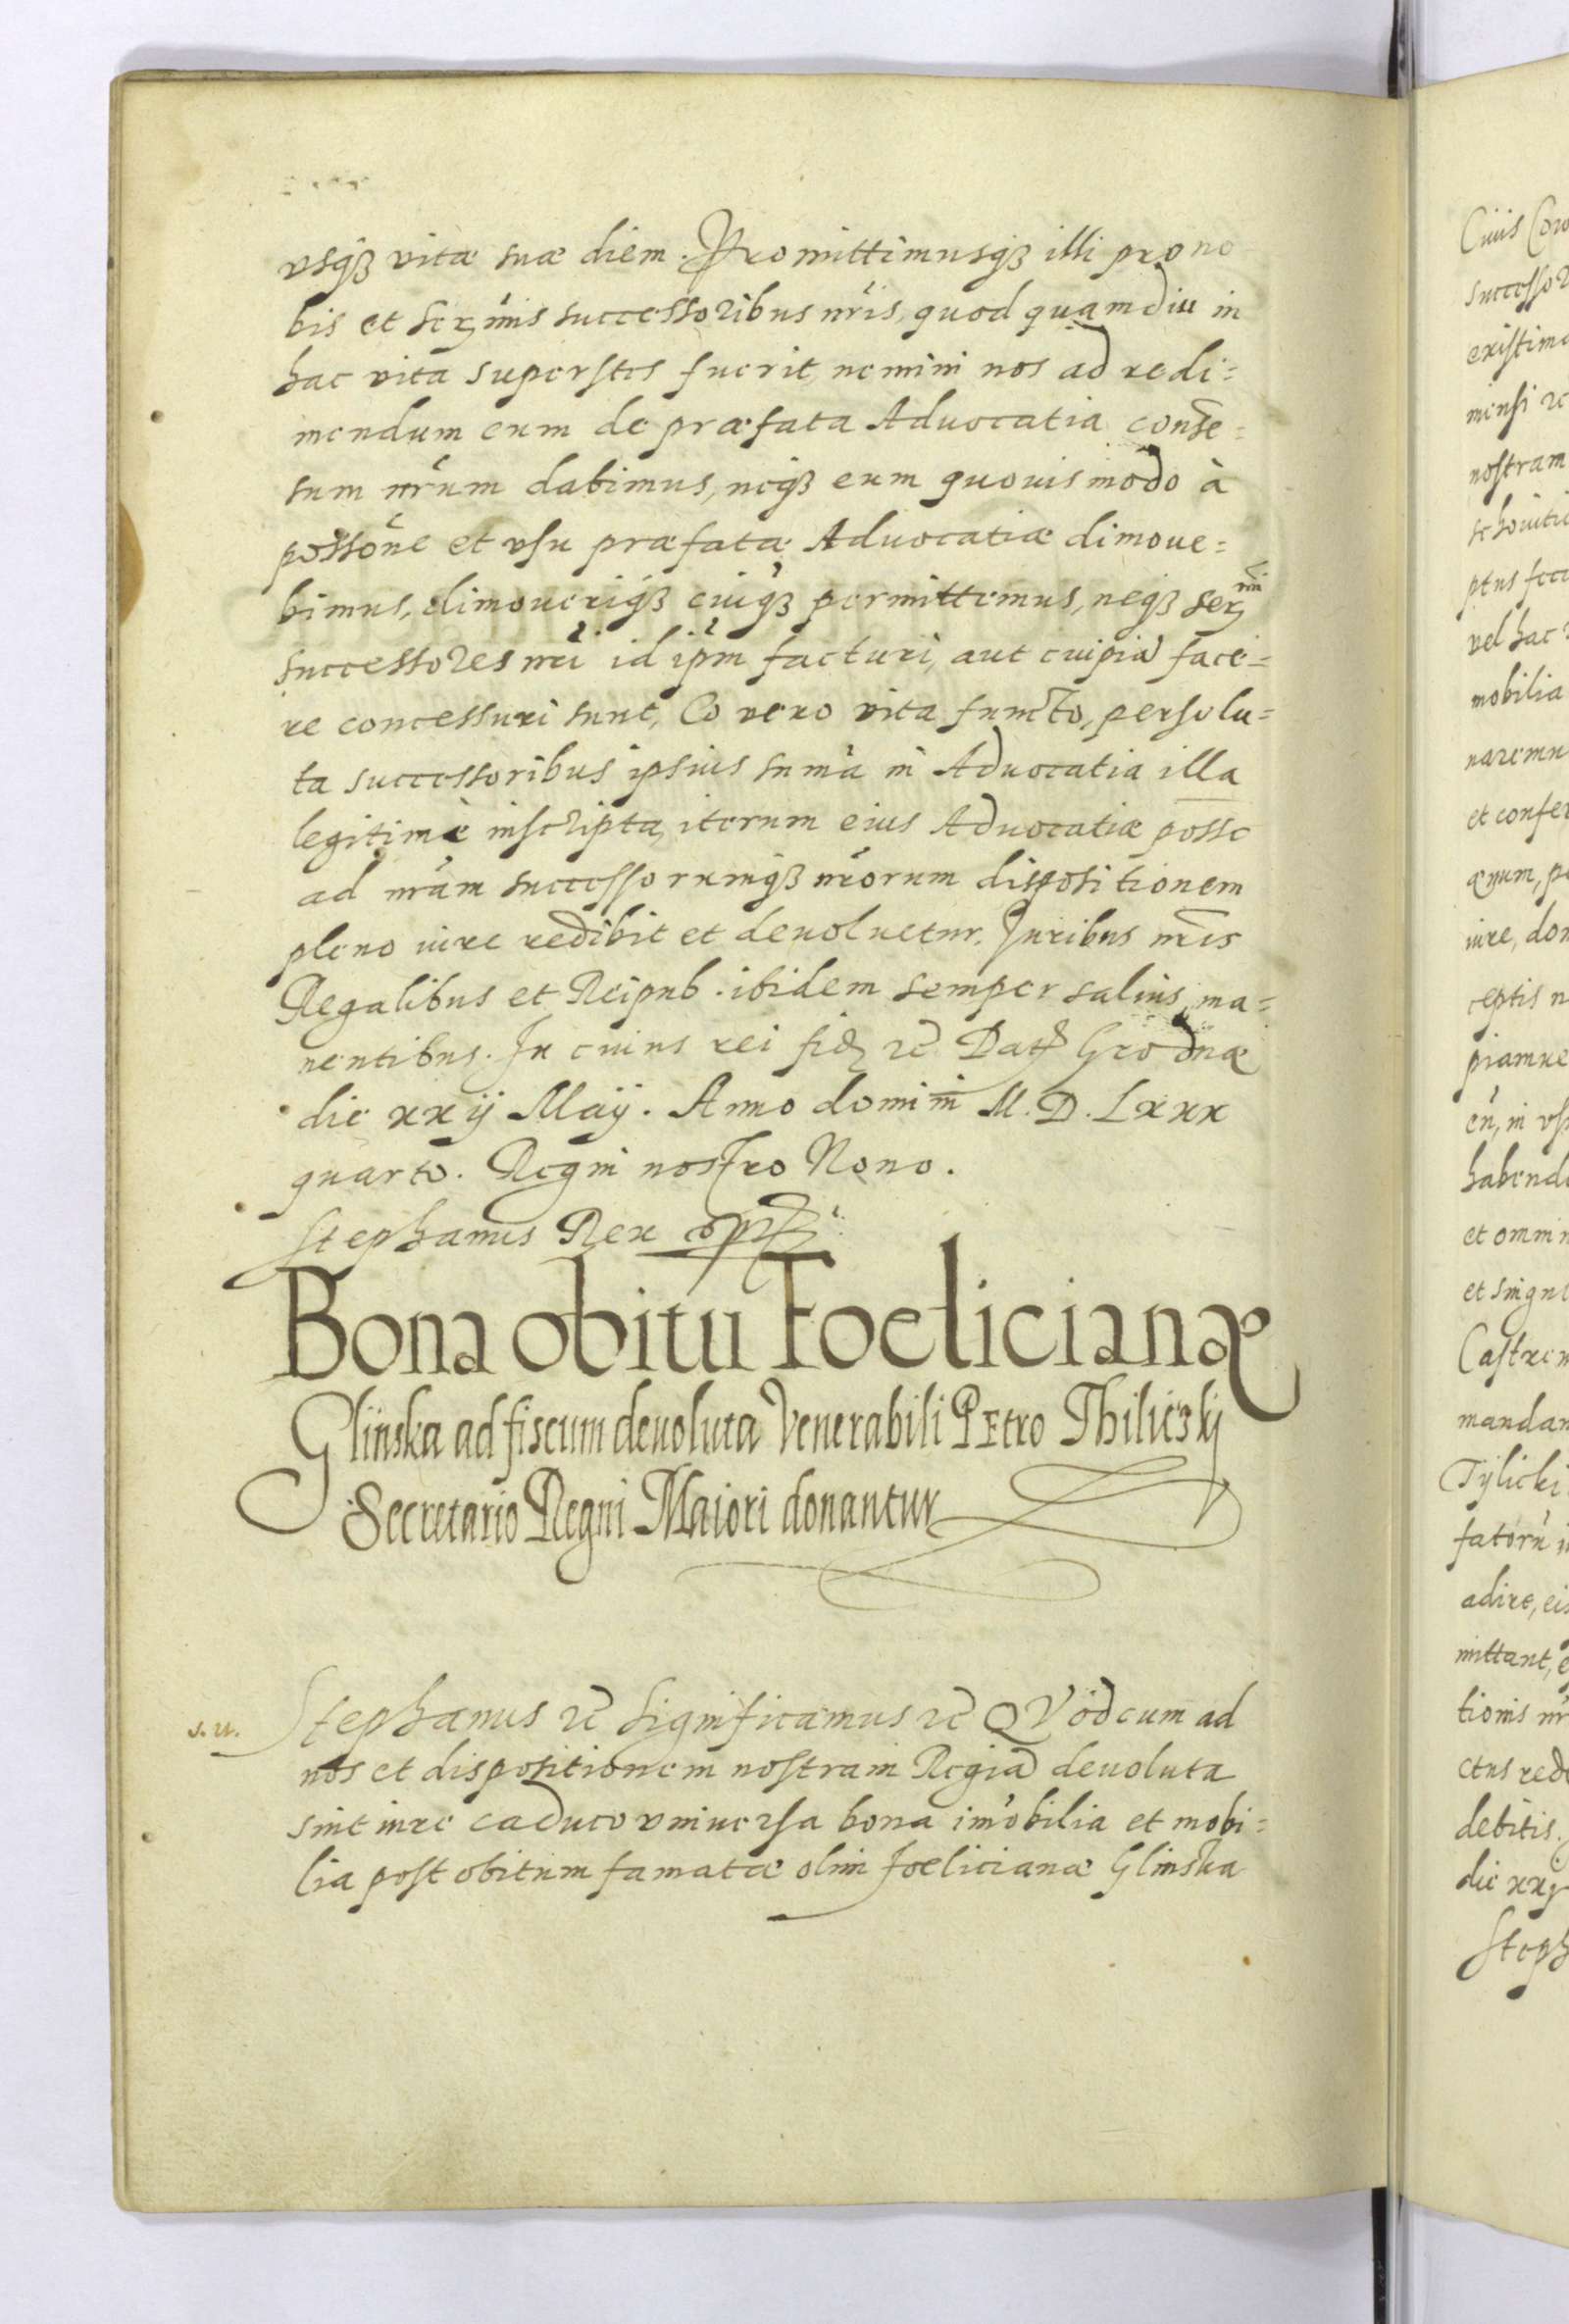 vsq₃ vitæ suæ diem. Promittimusq₃ illi pro no
bis et ser̄mis successoribus nr̃is, quod quamdiu in
hac vita superstes fuerit, nemini nos ad redi=
mendum eum de præfata Aduocatia conse̅=
sum nr̃um dabimus, neq₃ eum quouis modo à
possõne et vsu præfatæ Aduocatiæ dimoue=
bimus, dimoueriq₃ cuiq₃ permittemus, neq₃ ser̄mi
successores nr̃i id ip̃m facturi, aut cuipiã face=
re concessuri sunt, Eo vero vita functo, persolu=
ta successoribus ipsius sum̃a in Aduocatia illa
legitimè inscripta, iterum eius Aduocatiæ possο
ad nr̃am successorumq₃ nr̃orum dispositionem
pleno iure redibit et deuoluetur. Juribus nr̃is
Regalibus et Reipub. ibidem semper saluis, ma=
nentibus. In cuius rei fidē ꝛc̃ Datꝭ Grodnæ
die xxij Maij. Anno domini M. D. Lxxx
quarto. Regni nostro Nono.
Stephanus Rex
Bona obitu Foelicianæ
Glinska ad fiscum deuoluta Venerabili PEtro Thilicskj
Secretario Regni Maiori donantur
Stephanus ꝛc̃ Significamus ꝛc̃ QVod cum ad
nos et dispositionem nostram Regiã deuoluta
sint iure caduco vniuersa bona im̃obilia et mobi=
lia post obitum famatæ olim Foelicianæ Glinska
Ciuis
successor
existima
nostram
vel hac
mobilia
naremu
et confer
iure, don
ceptis n
habend
et omni
et singul
Castren
mandan
Tÿlicki
fatorũ
adire, eis
mittant,
tionis nr
ctus red
debitis.
die xx
Steph